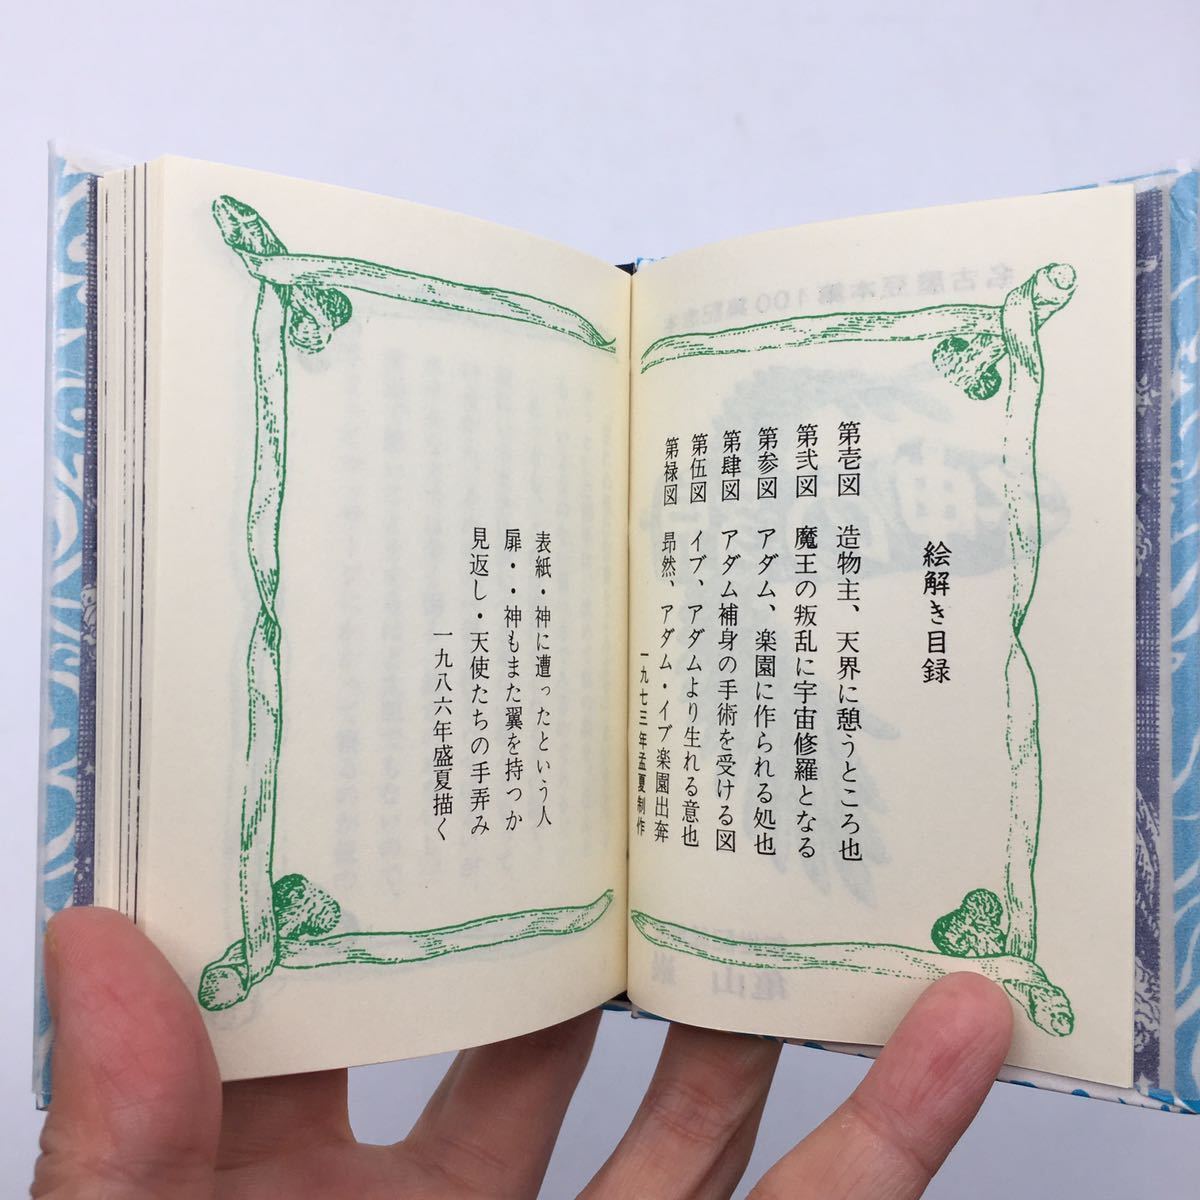 絵解き目録
第壱図　造物主、天界に憩うところ也
第弐図　魔王の叛乱に宇宙修羅となる
第参図　アダム、楽園に作られる処也
第肆図　アダム補身の手術を受ける図
第伍図　イブ、アダムより生れる意也
第禄図　昂然、アダム・イブ楽園出奔
一九七三年孟夏制作
表紙・神に遭ったという人
扉・・神もまた翼を持つか
見返し・天使たちの手弄み
一九八六年盛夏描く